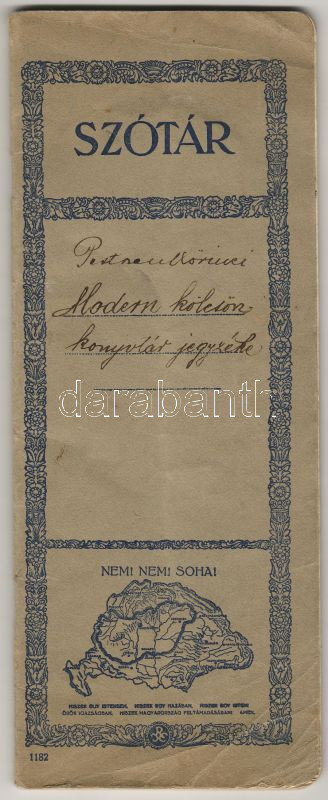 SZÓTÁR
Pestszentlőrinci
Modern kölcsön
könyvtár jegyzéke
darabanth
NEM! NEM! SOHA!
HISZEK EGY ISTENBEN, HISZEK EGY HAZÁBAN, HISZEK EGY ISTENI
ÖRÖK IGAZSÁGBAN, HISZEK MAGYARORSZÁG FELTÁMADÁSÁBAN! ÁMEN.
1182